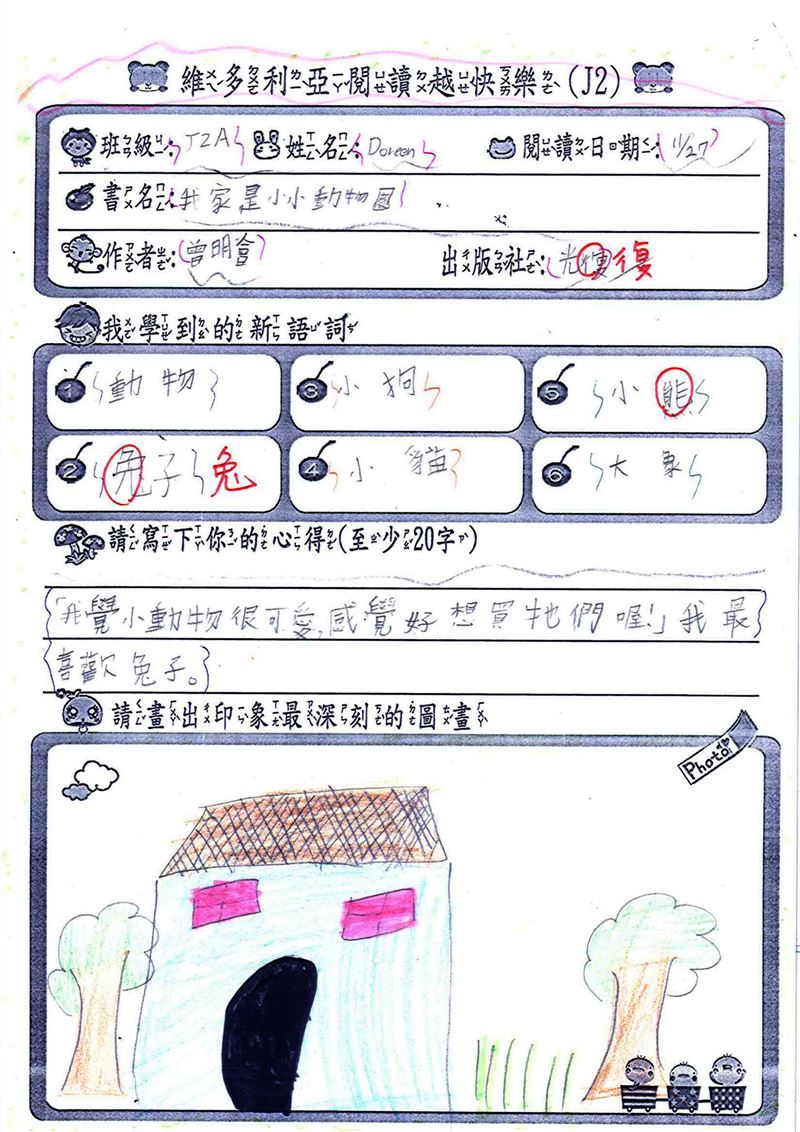 維ㄨㄟˊ多ㄉㄨㄛ利ㄌㄧˋ亞ㄧㄚˇ閱ㄩㄝˋ讀ㄉㄨˊ越ㄩㄝˋ快ㄎㄨㄞˋ樂ㄌㄜˋ(J2)
班ㄅㄢ級ㄐㄧˊ: J2A 姓ㄒㄧㄥˋ名ㄇㄧㄥˊ: Doreen 閱ㄩㄝˋ讀ㄉㄨˊ日ㄖˋ期ㄑㄧˊ: 11/27
書ㄕㄨ名ㄇㄧㄥˊ: 我家是小小動物園
作ㄗㄨㄛˋ者ㄓㄜˇ: 曾明會 出ㄔㄨ版ㄅㄢˇ社ㄕㄜˋ: 光復 復
我ㄨㄛˇ學ㄒㄩㄝˊ到ㄉㄠˋ的ㄉㄜ˙新ㄒㄧㄣ語ㄩˇ詞ㄘˊ
1 動物 3 小狗 5 小熊
2 兔子 兔 4 小貓 6 大象
請ㄑㄧㄥˇ寫ㄒㄧㄝˇ下ㄒㄧㄚˋ你ㄋㄧˇ的ㄉㄜ˙心ㄒㄧㄣ得ㄉㄜˊ(至ㄓˋ少ㄕㄠˇ20字ㄗˋ)
「我覺小動物很可愛,感覺好想買牠們喔!」我最
喜歡兔子。
請ㄑㄧㄥˇ畫ㄏㄨㄚˋ出ㄔㄨ印ㄧㄣˋ象ㄒㄧㄤˋ最ㄗㄨㄟˋ深ㄕㄣ刻ㄎㄜˋ的ㄉㄜ˙圖ㄊㄨˊ畫ㄏㄨㄚˋ
Photo!